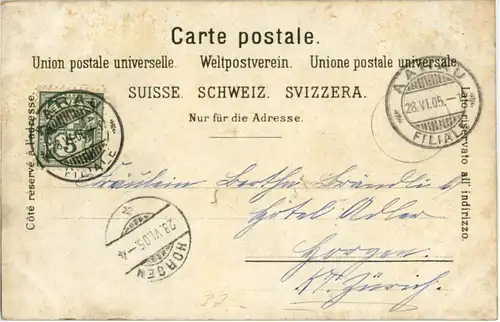 Carte postale.
Union postale universelle. Weltpostverein. Unione postale universale.
SUISSE. SCHWEIZ. SVIZZERA.
Nur für die Adresse.
Côté réservé à l'adresse.
Lato riservato all' indirizzo.
AARAU
FILIALE
5
AARAU
28.VI.05.
FILIALE
Fräulein Bertha Brändli
Hotel Adler
Horgen
Kt. Zürich.
28.VI.05.-4
HORGEN